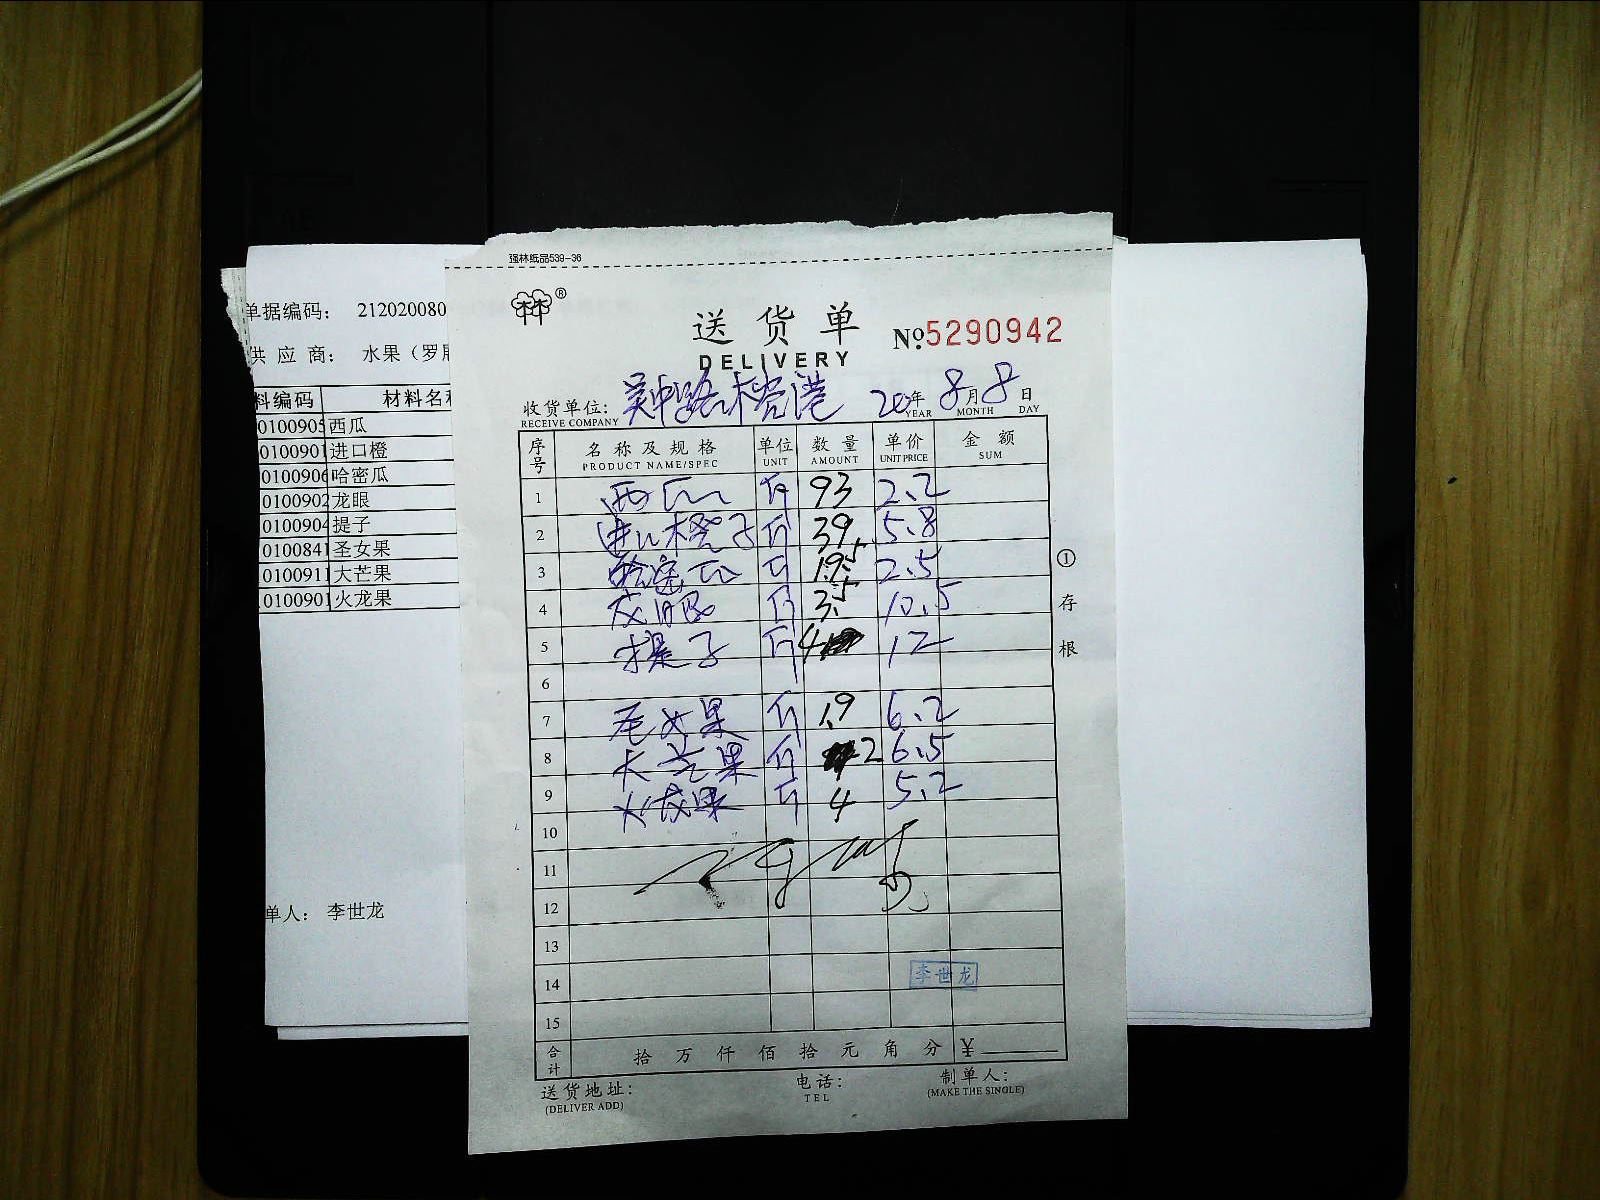 单据编码： 212020080
供 应 商： 水果（罗
料编码 材料名
0100905 西瓜
0100901 进口橙
0100906 哈密瓜
0100902 龙眼
0100904 提子
0100841 圣女果
0100911 大芒果
0100901 火龙果
单人： 李世龙
强林纸品539-36
®
送 货 单
DELIVERY
№5290942
收货单位: 吴中路 港 20 年 8 月 8 日
RECEIVE COMPANY YEAR MONTH DAY
序号 名 称 及 规 格 单位 数 量 单 价 金 额
PRODUCT NAME/SPEC UNIT AMOUNT UNIT PRICE SUM
1 西瓜 斤 93 2.2
2 进口橙子 斤 39 5.8
3 哈密瓜 斤 19.5 2.5
4 龙眼 斤 3.5 10.5
5 提子 斤 4 12
6
7 圣女果 斤 1.9 6.2
8 大芒果 斤 2 6.5
9 火龙果 斤 4 5.2
10
11
12
13
14 李世龙
15
合计 拾 万 仟 佰 拾 元 角 分 ¥
送 货 地 址: 电 话: 制 单 人:
(DELIVER ADD) TEL (MAKE THE SINGLE)
① 存 根